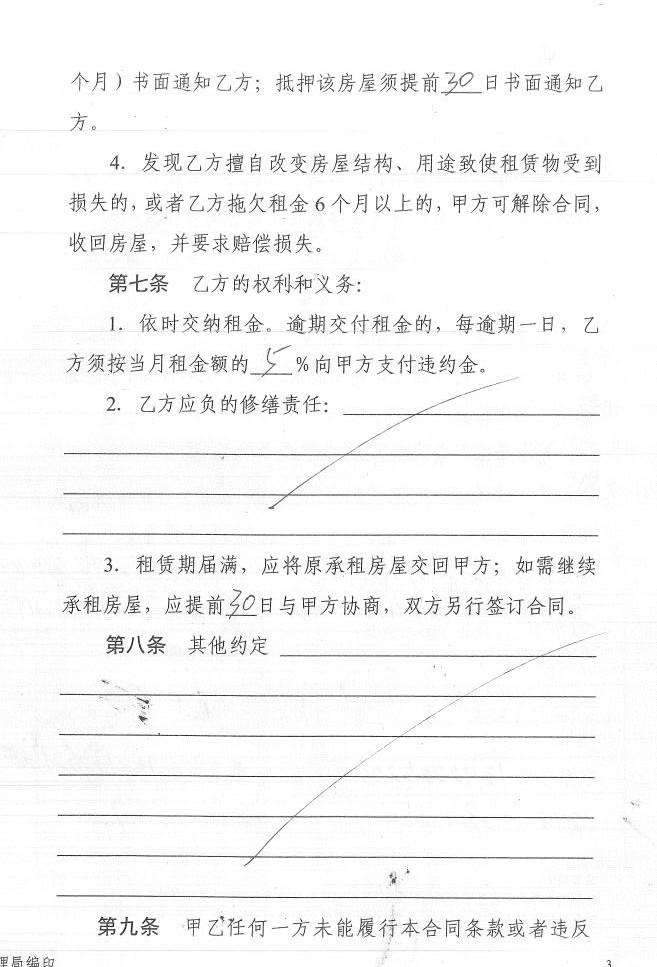 个月）书面通知乙方；抵押该房屋须提前30日书面通知乙
方。
4. 发现乙方擅自改变房屋结构、用途致使租赁物受到
损失的，或者乙方拖欠租金6个月以上的，甲方可解除合同，
收回房屋，并要求赔偿损失。
第七条 乙方的权利和义务：
1. 依时交纳租金。逾期交付租金的，每逾期一日，乙
方须按当月租金额的5%向甲方支付违约金。
2. 乙方应负的修缮责任：
3. 租赁期届满，应将原承租房屋交回甲方；如需继续
承租房屋，应提前30日与甲方协商，双方另行签订合同。
第八条 其他约定
第九条 甲乙任何一方未能履行本合同条款或者违反
理局编印 3